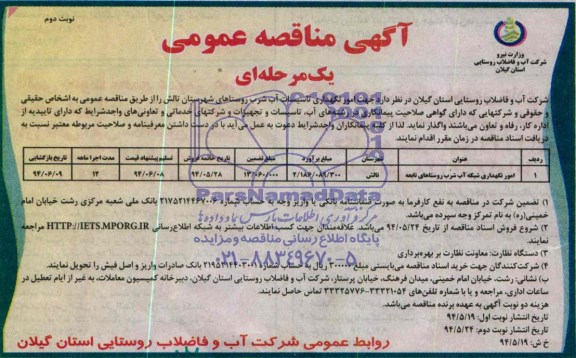 نوبت دوم
وزارت نیرو
شرکت آب و فاضلاب روستایی
استان گیلان
آگهی مناقصه عمومی
یک مرحله‌ای
شرکت آب و فاضلاب روستایی استان گیلان در نظر دارد جهت امور نگهداری تاسیسات آب شرب روستاهای شهرستان تالش را از طریق مناقصه عمومی به اشخاص حقیقی
و حقوقی و شرکتهایی که دارای گواهی صلاحیت پیمانکاری در رشته‌های آب، تاسیسات و تجهیزات و شرکتهای خدماتی و تعاونی‌های واجدشرایط که دارای تاییدیه از
اداره کار، رفاه و تعاون می‌باشند واگذار نماید. لذا از کلیه پیمانکاران واجدشرایط دعوت به عمل می‌آید با در دست داشتن معرفینامه و صلاحیت مربوطه معتبر نسبت به
دریافت اسناد مناقصه در زمان مقرر اقدام نمایند.
ردیف عنوان شهرستان مبلغ برآورد مبلغ تضمین خاتمه فروش تسلیم پیشنهاد قیمت مدت اجرا ماهه تاریخ بازگشایی
۱ امور نگهداری شبکه آب شرب روستاهای تابعه تالش ۲/۱۸۶/۰۸۹/۳۰۰ ۱۳/۰۶۰/۰۰۰ ۹۴/۰۵/۲۸ ۹۴/۰۶/۰۸ ۱۲ ۹۴/۰۶/۰۹
۱) تضمین شرکت در مناقصه به نفع کارفرما به صورت ضمانتنامه بانکی یا واریز وجه به حساب شماره ۲۱۷۵۲۱۴۴۶۷۰۰۶ بانک ملی شعبه مرکزی رشت خیابان امام
خمینی(ره) به نام تمرکز وجه سپرده می‌باشد.
۲) شروع فروش اسناد مناقصه از تاریخ ۹۴/۰۵/۲۴ می‌باشد. علاقه‌مندان جهت کسب اطلاعات بیشتر به شبکه اطلاع‌رسانی HTTP://IETS.MPORG.IR مراجعه
نمایند.
۳) دستگاه نظارت: معاونت نظارت بر بهره‌برداری
۴) شرکت‌کنندگان جهت خرید اسناد مناقصه می‌بایستی مبلغ ریال به حساب شماره بانک صادرات واریز و اصل فیش را تحویل نمایند.
۵) نشانی: رشت، خیابان امام خمینی، میدان فرهنگ، خیابان پرستار، شرکت آب و فاضلاب روستایی استان گیلان، دبیرخانه کمیسیون معاملات، به غیر از ایام تعطیل در
ساعات اداری، مراجعه و یا با شماره تلفن‌های ۳۳۳۲۱۰۵۴-۳۳۳۲۵۷۷۶ تماس حاصل نمایند.
هزینه دو نوبت آگهی به عهده برنده مناقصه می‌باشد.
تاریخ انتشار نوبت اول: ۹۴/۵/۱۹
تاریخ انتشار نوبت دوم: ۹۴/۵/۲۴
خ ش: ۹۴/۵/۱۹
روابط عمومی شرکت آب و فاضلاب روستایی استان گیلان
ParsNamadData
پایگاه اطلاع رسانی مناقصه و مزایده
۰۲۱-۸۸۳۴۹۶۷۰-۵